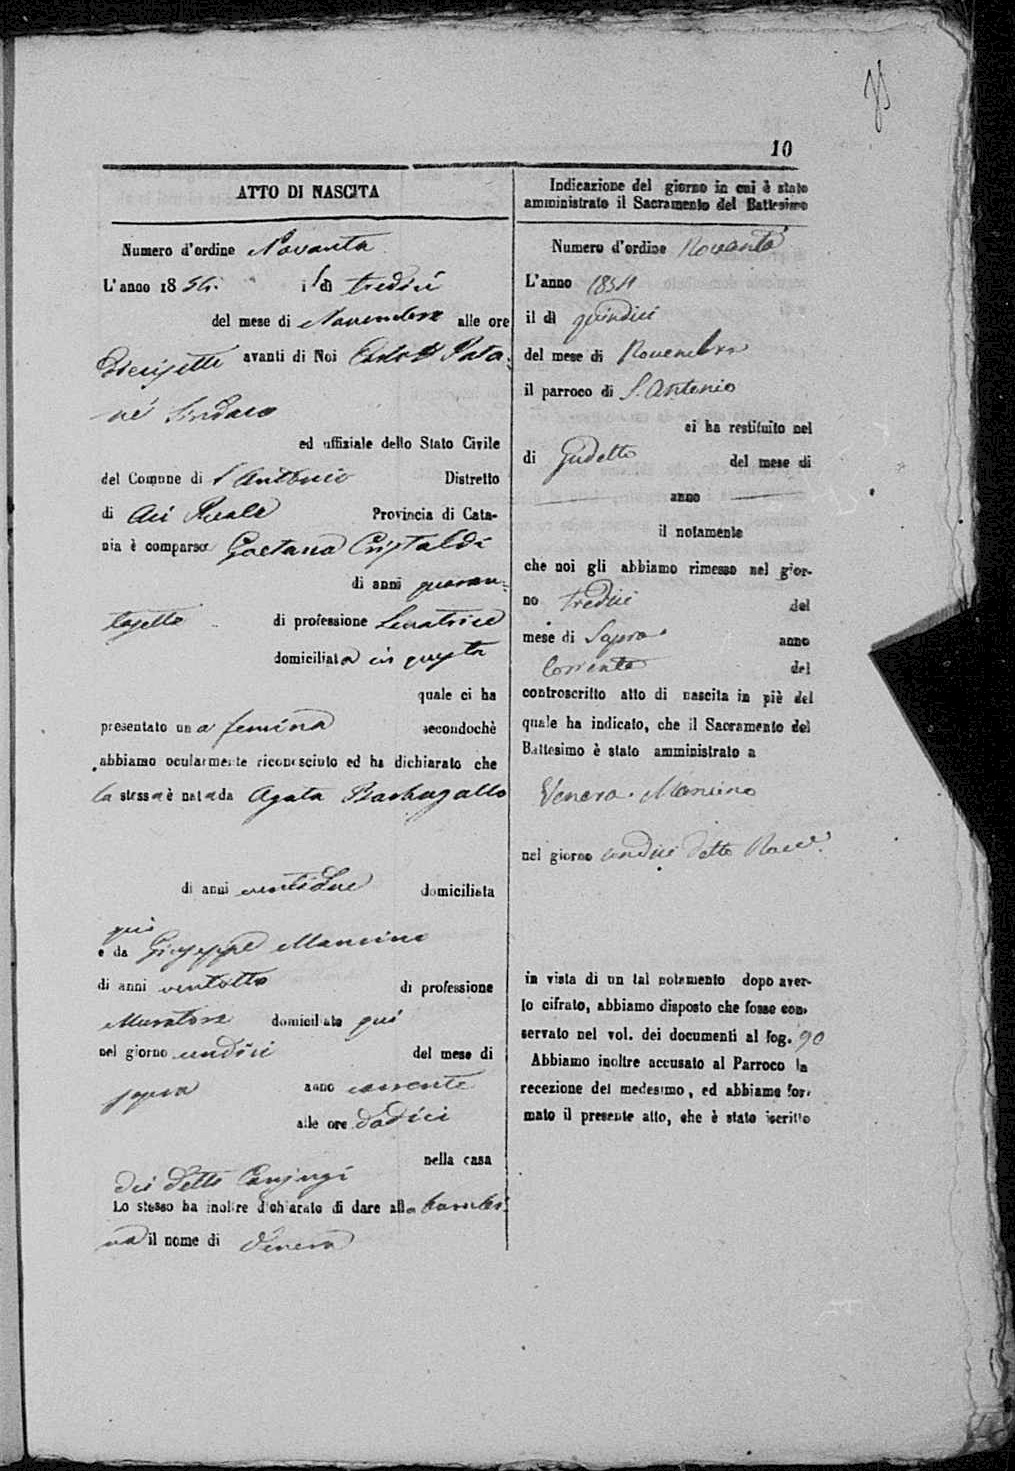 10
ATTO DI NASCITA
Numero d'ordine Novanta
L'anno 1854. il dì tredici
del mese di Novembre alle ore
diecisette avanti di Noi Pata-
nè Sindaco
ed uffiziale dello Stato Civile
del Comune di S. Antonio Distretto
di Aci Reale Provincia di Cata-
nia è comparsa Gaetana Cristaldi
di anni quaran-
tasette di professione Levatrice
domiciliata in questa
quale ci ha
presentato una femina secondochè
abbiamo ocularmente riconosciuto ed ha dichiarato che
la stessa è nata da Agata Barbagallo
di anni ventidue domiciliata
qui
e da Giuseppe Mancino
di anni ventotto di professione
Muratore domiciliato qui
nel giorno undici del mese di
sopra anno corrente
alle ore dodici
nella casa
dei detti Conjugi
Lo stesso ha inoltre dichiarato di dare alla bambi-
na il nome di Venera
Indicazione del giorno in cui è stato
amministrato il Sacramento del Battesimo
Numero d'ordine Novanta
L'anno 1854
il dì quindici
del mese di Novembre
il parroco di S. Antonio
ci ha restituito nel
di Sudetto del mese di
anno
il notamento
che noi gli abbiamo rimesso nel gior-
no tredici del
mese di Sopra anno
Corrente del
controscritto atto di nascita in piè del
quale ha indicato, che il Sacramento del
Battesimo è stato amministrato a
Venera Mancino
nel giorno undici detto Nove.
in vista di un tal notamento dopo aver-
lo cifrato, abbiamo disposto che fosse con-
servato nel vol. dei documenti al fog. 90
Abbiamo inoltre accusato al Parroco la
recezione del medesimo, ed abbiamo for-
mato il presente atto, che è stato iscritto